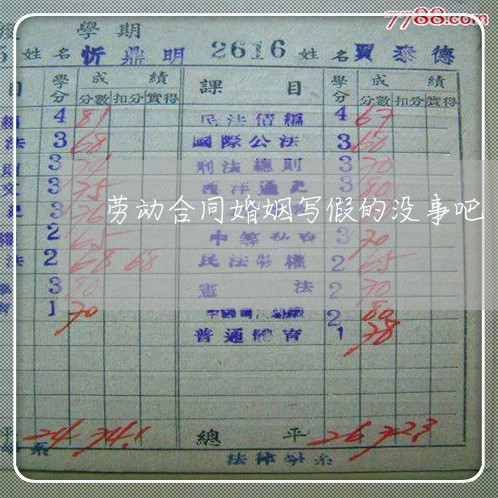 7788.com
學期
姓名 忻鼎明 2616 姓名 賈泰德
目 學分 成績 課目 學分 成績
分數 扣分 實得 分數 扣分 實得
4 81 民法債編 4 67
法 3 68 國際公法 3 60
3 刑法總則 3 70
3 75 西洋通史 3 80
劳动合同婚姻写假的没事吧
2 65 3 70
法 2 68 68 民法物權 2 65
3 80 憲法 2 70
1 70 2 80
普通體育 1 78
平 24 74.1 總平 26 72.3
系 法律學系